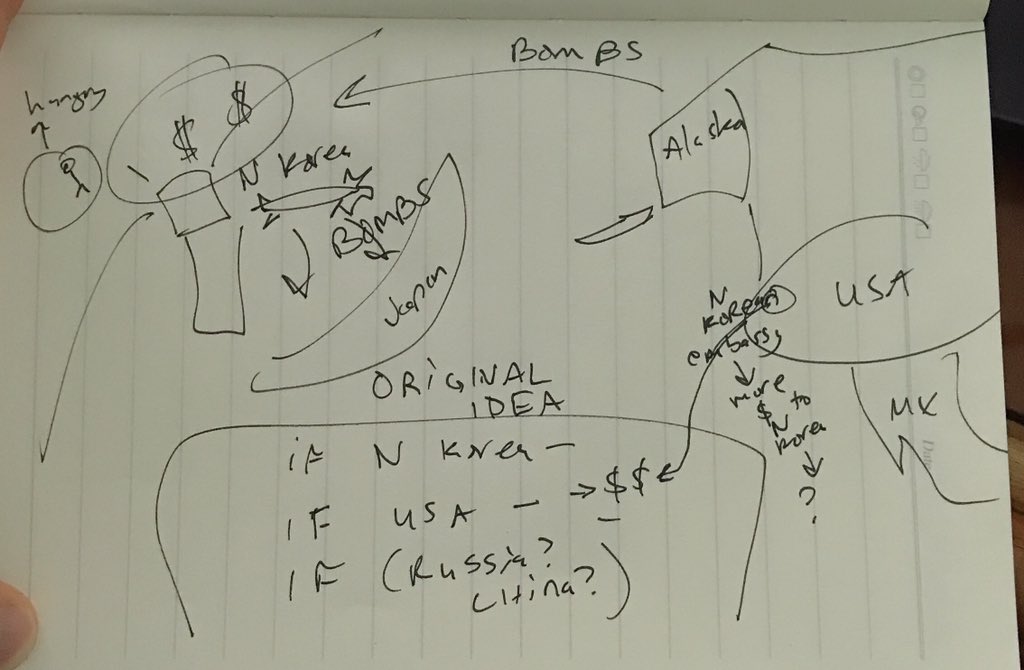 BOMBS
hungry
$ $
N Korea
BOMBS
Japan
Alaska
USA
N
Korean
embassy
more
$ to
N
Korea
?
MX
ORIGINAL
IDEA
IF N Korea –
IF USA – → $$
IF (Russia?
China?)